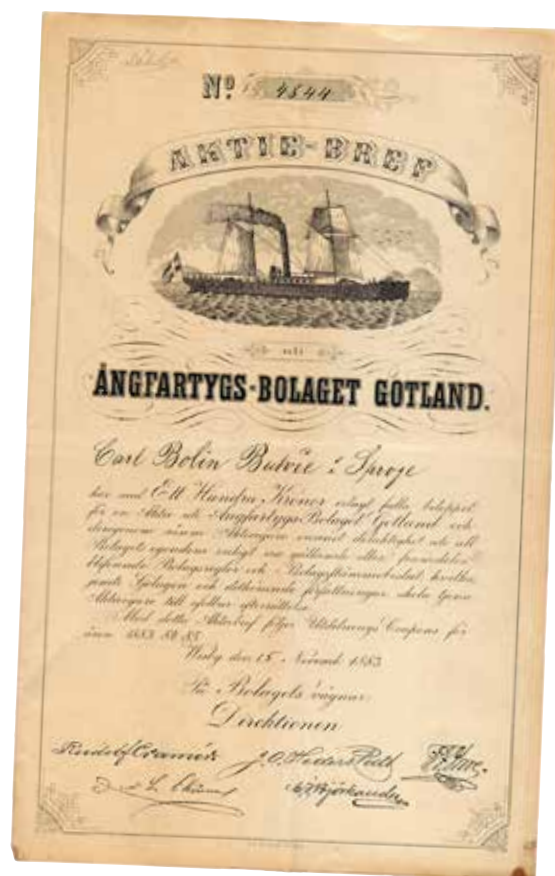 Nº 4844
AKTIE-BREF
uti
ÅNGFARTYGS-BOLAGET GOTLAND.
Carl Bolin Butvie i Sproge
har med Ett Hundra Kronor erlagt fulla beloppet
för en Aktie uti Ångfartygs Bolaget Gotland och
derigenom såsom Aktieegare vunnit delaktighet uti all
Bolagets egendom enligt nu gällande eller framdeles
blifvande Bolagsregler och Bolagsstämmobeslut, hvilka
jemte Lagen och författningar skola
Aktieegare till efterrättelse.
Med detta Aktiebref följer Utdelnings Coupons för
åren 1883 84 85.
Wisby den 15 Novemb 1883
På Bolagets vägnar
Direktionen
Rudolf Cramér J. O. Hederstedt
Björkander